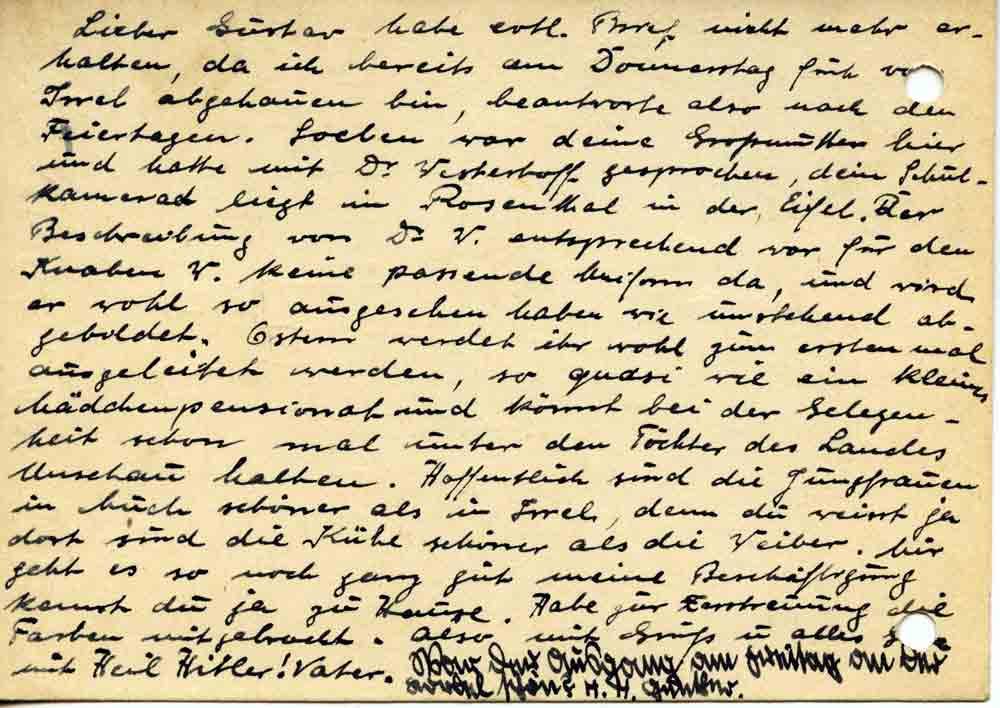 Lieber Gustav habe evtl. Brief nicht mehr er-
halten, da ich bereits am Donnerstag früh von
Irrel abgehauen bin, beantworte also nach den
Feiertagen. Soeben war deine Großmutter hier
und hatte mit Dr Westerhoff gesprochen, dein Schul-
kamerad liegt in Rosenthal in der Eifel. Der
Beschreibung von Dr V. entsprechend war für den
Knaben V. keine passende Uniform da, und wird
er wohl so ausgesehen haben wie umstehend ab-
gebildet. Ostern werdet ihr wohl zum ersten mal
ausgeleitet werden, so quasi wie ein kleines
Mädchenpensionat und könnt bei der Gelegen-
heit schon mal unter den Töchter des Landes
Umschau halten. Hoffentlich sind die Jungfrauen
in buch schöner als in Irrel, denn du weisst ja
dort sind die Kühe schöner als die Weiber. Mir
geht es so noch ganz gut meine Beschäftigung
kennst du ja zu Hause. Habe zur Zerstreuung die
Farben mitgebracht. Also mit Gruß u alles
mit Heil Hitler! Vater. War der Ausgang am Freitag an der
schön? H. H. Günther.